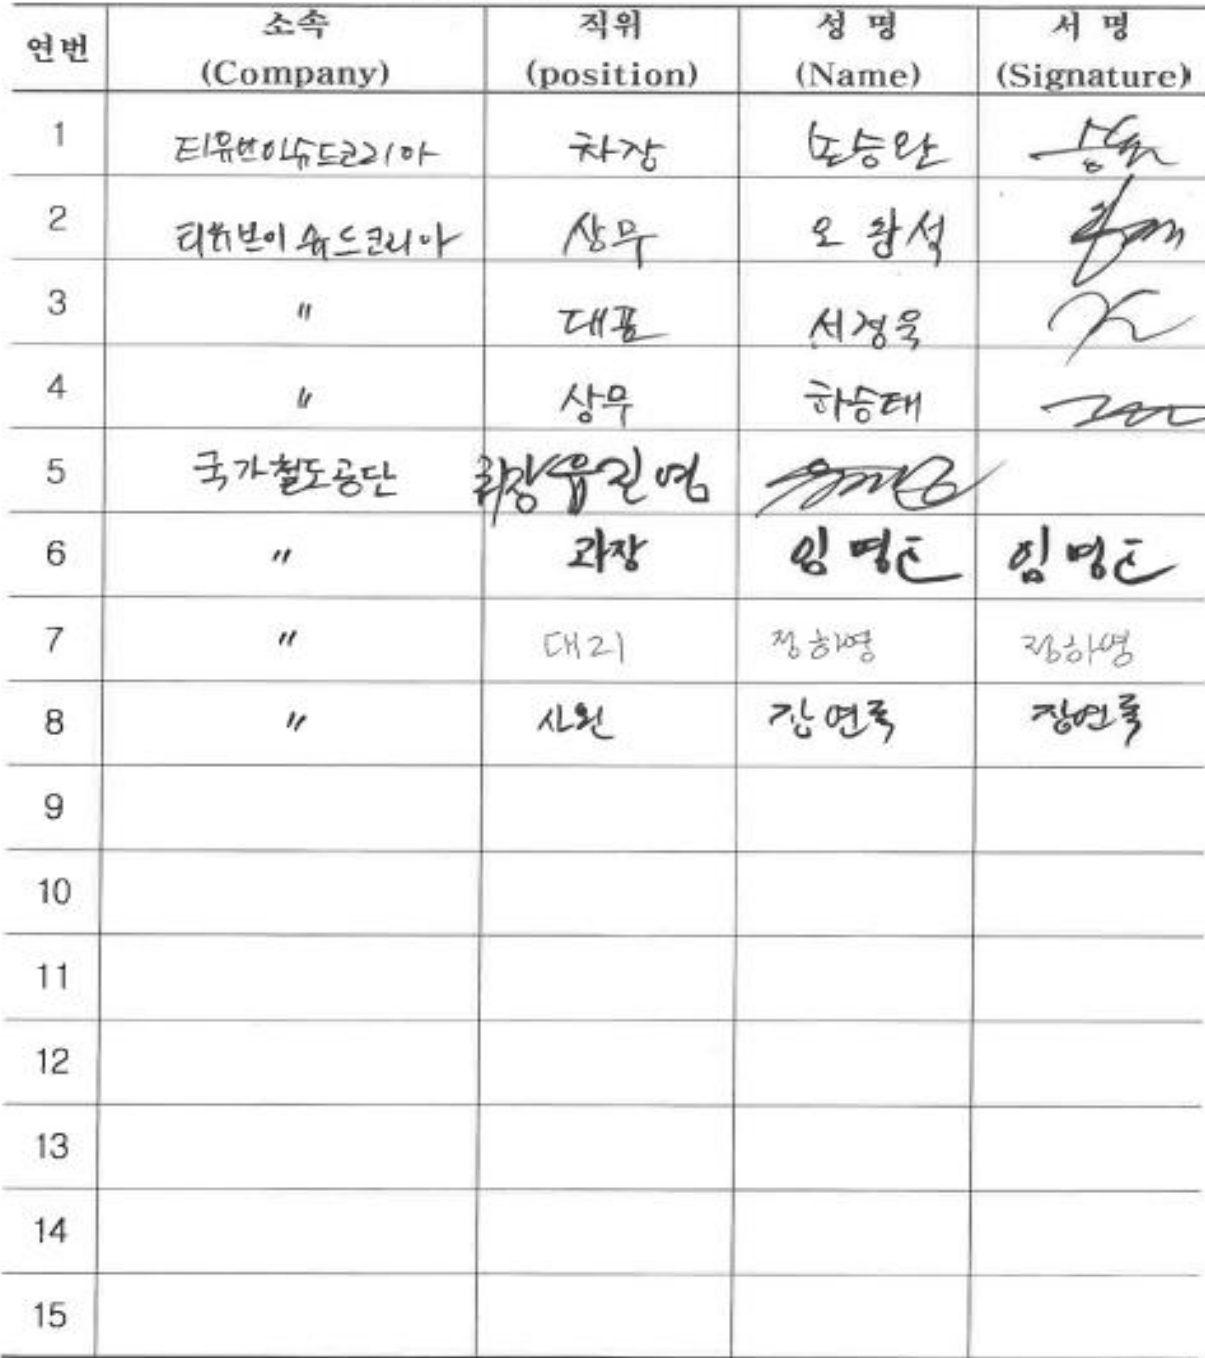 연번 소속 직위 성명 서명
(Company) (position) (Name) (Signature)
1 티유브이슈드코리아 차장 손승완
2 티유브이슈드코리아 상무 오광석
3 〃 대표 서정욱
4 〃 상무 하승태
5 국가철도공단
6 〃 과장 임명
7 〃 대리 정하영 정하영
8 〃 사원 장연륵 장연륵
9
10
11
12
13
14
15